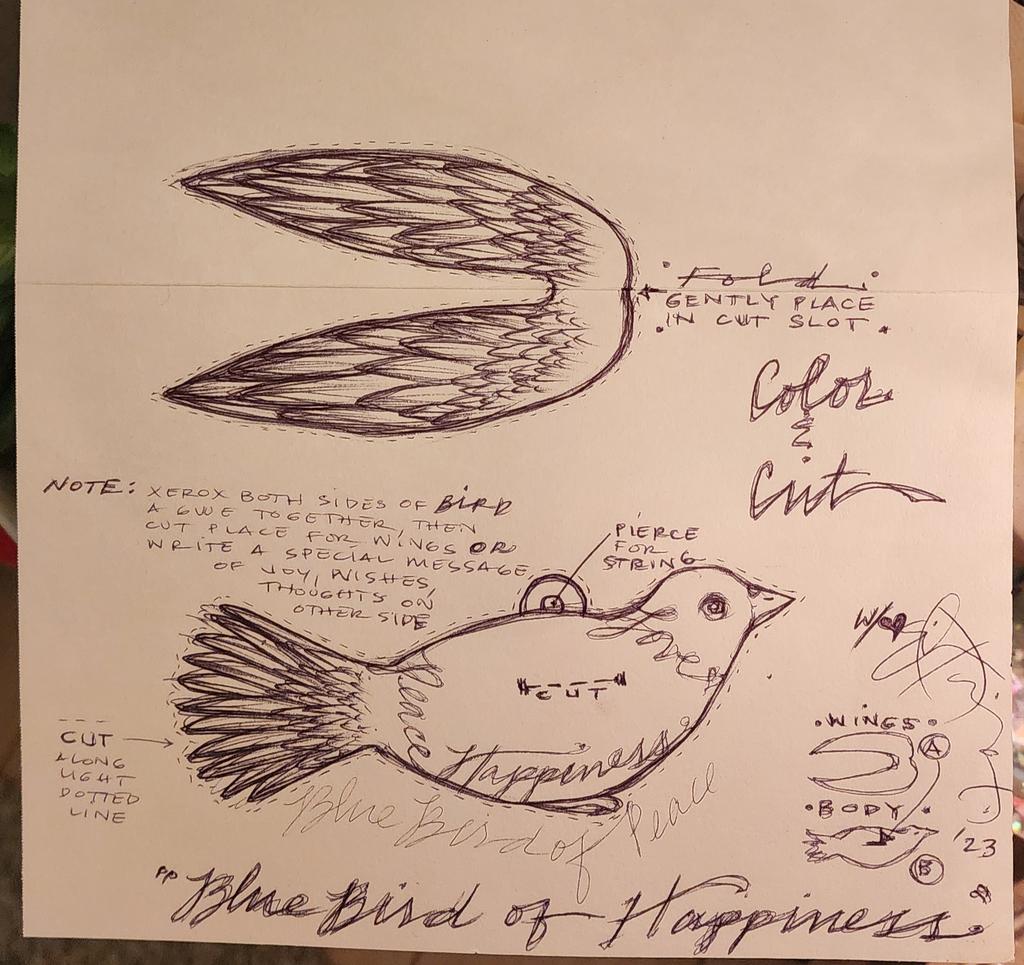 Fold
GENTLY PLACE
IN CUT SLOT.
Color
&
Cut
NOTE: XEROX BOTH SIDES OF BIRD
& GLUE TOGETHER, THEN
CUT PLACE FOR WINGS OR
WRITE A SPECIAL MESSAGE
OF JOY, WISHES,
THOUGHTS ON
OTHER SIDE
PIERCE
FOR
STRING
Love
Peace
"CUT"
Happiness
Blue Bird of Peace
CUT
ALONG
LIGHT
DOTTED
LINE
WINGS
A
BODY
B
'23
"Blue Bird of Happiness"